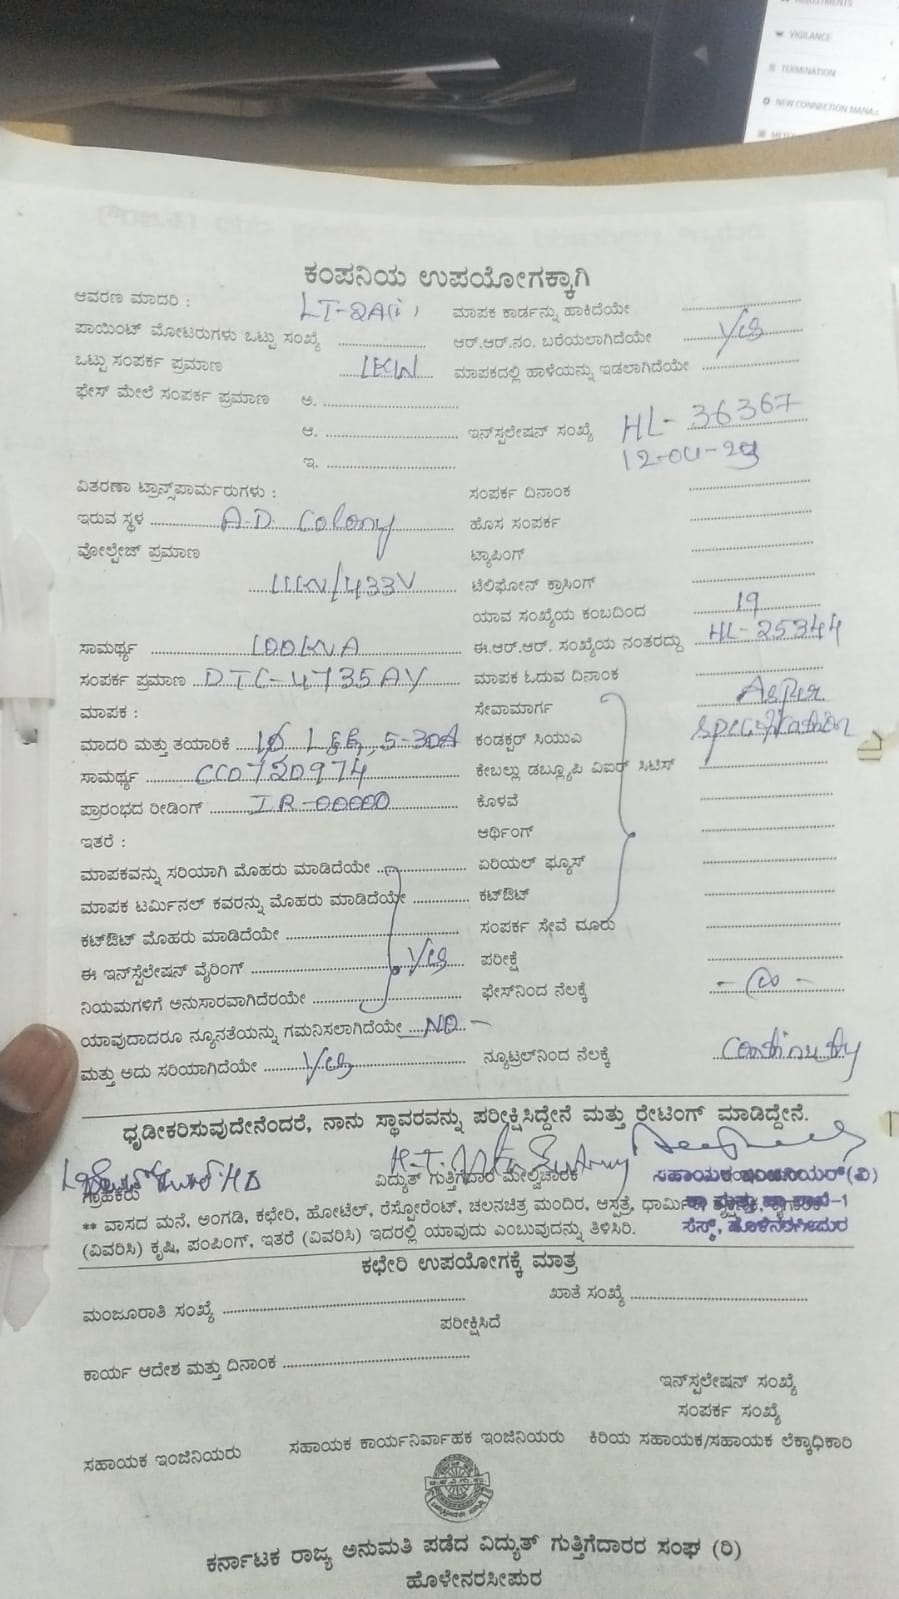 VIGILANCE
TERMINATION
NEW CONNECTION MANA
ಕಂಪನಿಯ ಉಪಯೋಗಕ್ಕಾಗಿ
ಆವರಣ ಮಾದರಿ : LT-2A(i) ಮಾಪಕ ಕಾರ್ಡನ್ನು ಹಾಕಿದೆಯೇ
ಪಾಯಿಂಟ್ ಮೋಟರುಗಳು ಒಟ್ಟು ಸಂಖ್ಯೆ ಆರ್.ಆರ್.ನಂ. ಬರೆಯಲಾಗಿದೆಯೇ Yes
ಒಟ್ಟು ಸಂಪರ್ಕ ಪ್ರಮಾಣ 1KW ಮಾಪಕದಲ್ಲಿ ಹಾಳೆಯನ್ನು ಇಡಲಾಗಿದೆಯೇ
ಫೇಸ್ ಮೇಲೆ ಸಂಪರ್ಕ ಪ್ರಮಾಣ ಅ.
ಆ. ಇನ್‌ಸ್ಟಲೇಷನ್ ಸಂಖ್ಯೆ HL-36367
ಇ. 12-04-24
ವಿತರಣಾ ಟ್ರಾನ್ಸ್‌ಪಾರ್ಮರುಗಳು : ಸಂಪರ್ಕ ದಿನಾಂಕ
ಇರುವ ಸ್ಥಳ A.D. Colony ಹೊಸ ಸಂಪರ್ಕ
ವೋಲ್ಟೇಜ್ ಪ್ರಮಾಣ ಟ್ಯಾಪಿಂಗ್
11KV/433V ಟೆಲಿಫೋನ್ ಕ್ರಾಸಿಂಗ್
ಯಾವ ಸಂಖ್ಯೆಯ ಕಂಬದಿಂದ 19
ಸಾಮರ್ಥ್ಯ 100KVA ಈ.ಆರ್.ಆರ್. ಸಂಖ್ಯೆಯ ನಂತರದ್ದು HL-25344
ಸಂಪರ್ಕ ಪ್ರಮಾಣ DTC-4735AY ಮಾಪಕ ಓದುವ ದಿನಾಂಕ
ಮಾಪಕ : ಸೇವಾಮಾರ್ಗ Asper
ಮಾದರಿ ಮತ್ತು ತಯಾರಿಕೆ 1Ø L&G, 5-30A ಕಂಡಕ್ಟರ್ ಸಿಯುಎ specification
ಸಾಮರ್ಥ್ಯ CC0720974 ಕೇಬಲ್ಲು ಡಬ್ಲ್ಯೂಪಿ ವಿಐಆರ್ ಸಿಟಿಸ್
ಪ್ರಾರಂಭದ ರೀಡಿಂಗ್ I.R-00000 ಕೊಳವೆ
ಇತರೆ : ಆರ್ಥಿಂಗ್
ಮಾಪಕವನ್ನು ಸರಿಯಾಗಿ ಮೊಹರು ಮಾಡಿದೆಯೇ ಏರಿಯಲ್ ಫ್ಯೂಸ್
ಮಾಪಕ ಟರ್ಮಿನಲ್ ಕವರನ್ನು ಮೊಹರು ಮಾಡಿದೆಯೇ ಕಟ್‌ಔಟ್
ಕಟ್‌ಔಟ್ ಮೊಹರು ಮಾಡಿದೆಯೇ ಸಂಪರ್ಕ ಸೇವೆ ದೂರು
ಈ ಇನ್‌ಸ್ಟೆಲೇಷನ್ ವೈರಿಂಗ್ Yes ಪರೀಕ್ಷೆ
ನಿಯಮಗಳಿಗೆ ಅನುಸಾರವಾಗಿದೆರಯೇ ಫೇಸ್‌ನಿಂದ ನೆಲಕ್ಕೆ
ಯಾವುದಾದರೂ ನ್ಯೂನತೆಯನ್ನು ಗಮನಿಸಲಾಗಿದೆಯೇ NO -
ಮತ್ತು ಅದು ಸರಿಯಾಗಿದೆಯೇ Yes ನ್ಯೂಟ್ರಲ್‌ನಿಂದ ನೆಲಕ್ಕೆ Continuty
ಧೃಡೀಕರಿಸುವುದೇನೆಂದರೆ, ನಾನು ಸ್ಥಾವರವನ್ನು ಪರೀಕ್ಷಿಸಿದ್ದೇನೆ ಮತ್ತು ರೇಟಿಂಗ್ ಮಾಡಿದ್ದೇನೆ.
ಗ್ರಾಹಕರು ವಿದ್ಯುತ್ ಗುತ್ತಿಗೆದಾರ ಮೇಲ್ವಿಚಾರಕ ಸಹಾಯಕ ಇಂಜಿನಿಯರ್(ವಿ)
** ವಾಸದ ಮನೆ, ಅಂಗಡಿ, ಕಛೇರಿ, ಹೋಟೆಲ್, ರೆಸ್ಟೋರೆಂಟ್, ಚಲನಚಿತ್ರ ಮಂದಿರ, ಆಸ್ಪತ್ರೆ,
(ವಿವರಿಸಿ) ಕೃಷಿ, ಪಂಪಿಂಗ್, ಇತರೆ (ವಿವರಿಸಿ) ಇದರಲ್ಲಿ ಯಾವುದು ಎಂಬುವುದನ್ನು ತಿಳಿಸಿರಿ. ಸೆಸ್ಕ್, ಹೊಳೆನರಸೀಪುರ
ಕಛೇರಿ ಉಪಯೋಗಕ್ಕೆ ಮಾತ್ರ
ಮಂಜೂರಾತಿ ಸಂಖ್ಯೆ ಖಾತೆ ಸಂಖ್ಯೆ
ಪರೀಕ್ಷಿಸಿದೆ
ಕಾರ್ಯ ಆದೇಶ ಮತ್ತು ದಿನಾಂಕ
ಇನ್‌ಸ್ಟಲೇಷನ್ ಸಂಖ್ಯೆ
ಸಂಪರ್ಕ ಸಂಖ್ಯೆ
ಸಹಾಯಕ ಇಂಜಿನಿಯರು ಸಹಾಯಕ ಕಾರ್ಯನಿರ್ವಾಹಕ ಇಂಜಿನಿಯರು ಕಿರಿಯ ಸಹಾಯಕ/ಸಹಾಯಕ ಲೆಕ್ಕಾಧಿಕಾರಿ
ಕರ್ನಾಟಕ ರಾಜ್ಯ ಅನುಮತಿ ಪಡೆದ ವಿದ್ಯುತ್ ಗುತ್ತಿಗೆದಾರರ ಸಂಘ (ರಿ)
ಹೊಳೇನರಸೀಪುರ